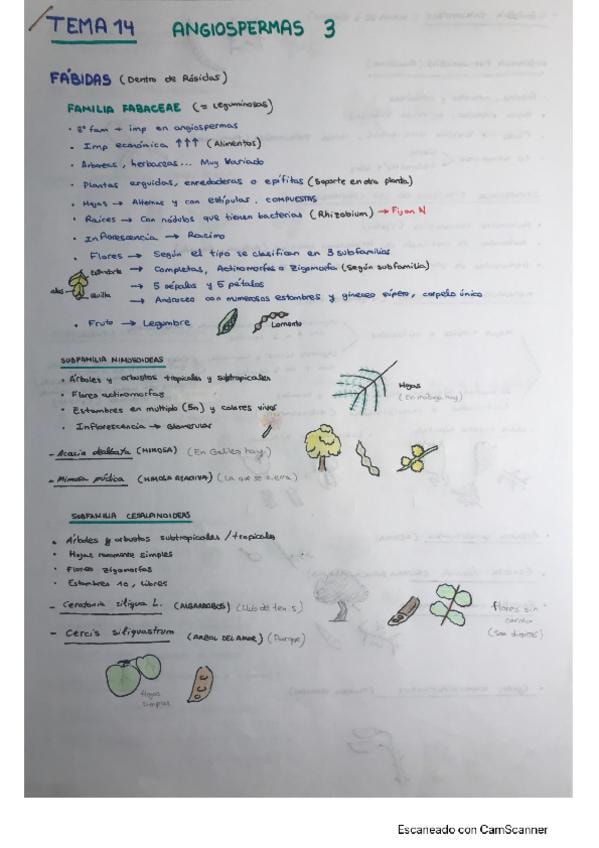 TEMA 14 ANGIOSPERMAS 3
FÁBIDAS (Dentro de Rósidas)
FAMILIA FABACEAE (= leguminosas)
· 3ª fam + imp en angiospermas
· Imp económica ↑↑↑ (Alimentos)
· Árboreas, herbáceas... Muy variado
· Plantas erguidas, enredaderas o epífitas (Soporte en otra planta)
· Hojas → Alternas y con estípulas. COMPUESTAS
· Raíces → Con nódulos que tienen bacterias (Rhizobium) → Fijan N
· Inflorescencia → Racimo
· Flores → Según el tipo se clasifican en 3 subfamilias
Estandarte → Completas, Actinomorfas o Zigomorfa (Según subfamilia)
alas quilla → 5 sépalos y 5 pétalos
→ Androceo con numerosos estambres y gineceo súpero, carpelo único
· Fruto → Legumbre Lomento
SUBFAMILIA MIMOSOIDEAS
· Árboles y arbustos tropicales y subtropicales
· Flores actinomorfas
· Estambres en multiplo (5n) y colores vivos
· Inflorescencia → Glomerular
Hojas
- Acacia dealbata (MIMOSA) (En Galicia hay)
- Mimosa púdica (MIMOSA REACTIVA) (La que se cierra)
SUBFAMILIA CESALPINOIDEAS
· Árboles y arbustos subtropicales / tropicales
· Hojas raramente simples
· Flores zigomorfas
· Estambres 10, libres
- Ceratonia siliqua L. (ALGARROBOS)
flores sin corola
- Cercis siliquastrum (ARBOL DEL AMOR) (Parque)
Hojas simples
Escaneado con CamScanner